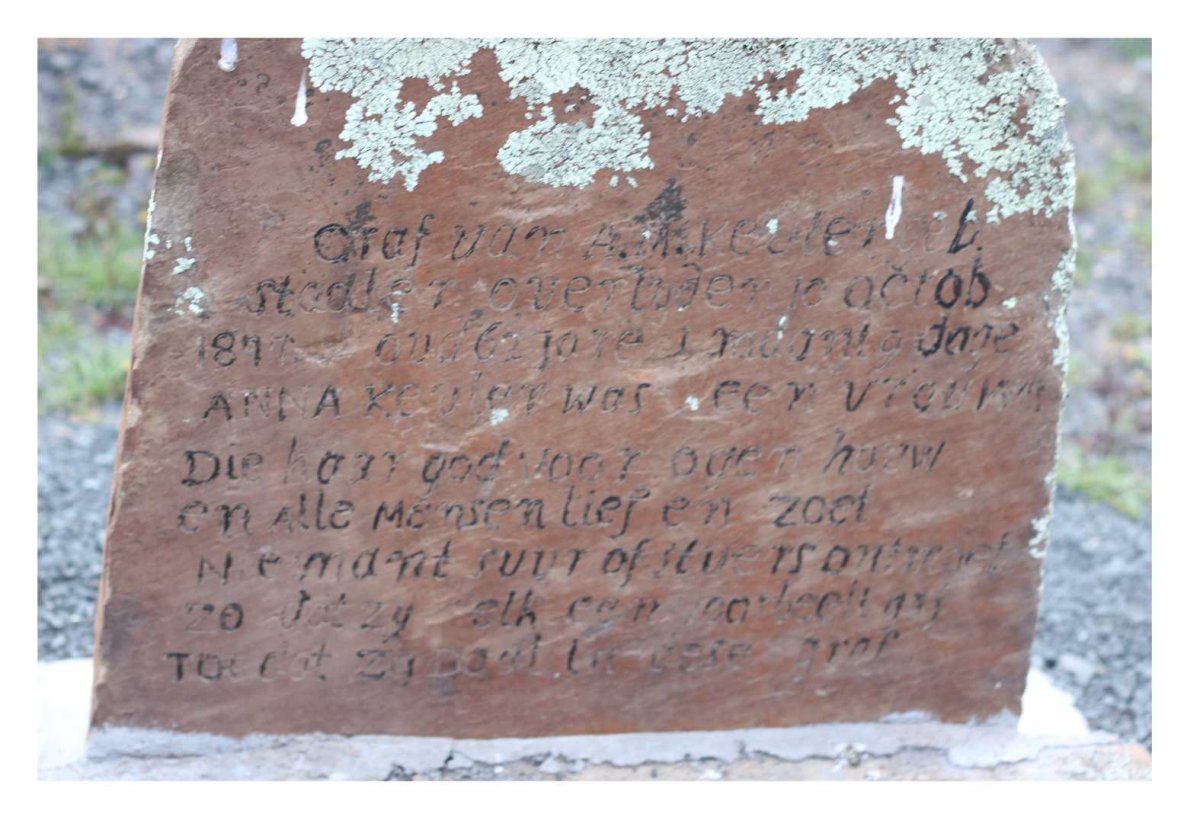 Graf van A.M. Keuler geb.
stadler overlyden 10 octob
oud 62 jare 1 maant 9 dage
ANNA Keuler was een vrouw
Die haar god voor ogen houw
en Alle Mensen lief en zoet
Niemant suur of stuers ontmoet
zo dat zy elk een voorbeelt gaf
Tot dat zy daal in dese graf